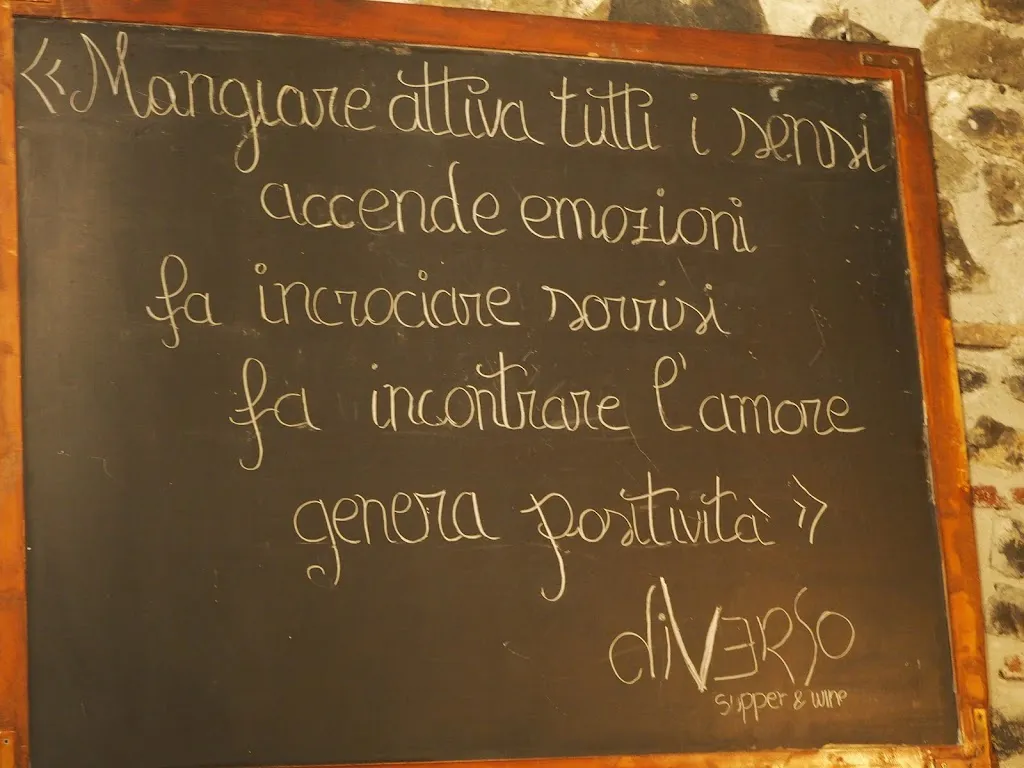 «Mangiare attiva tutti i sensi
accende emozioni
fa incrociare sorrisi
fa incontrare l'amore
genera positività»
diVERSO
supper & wine